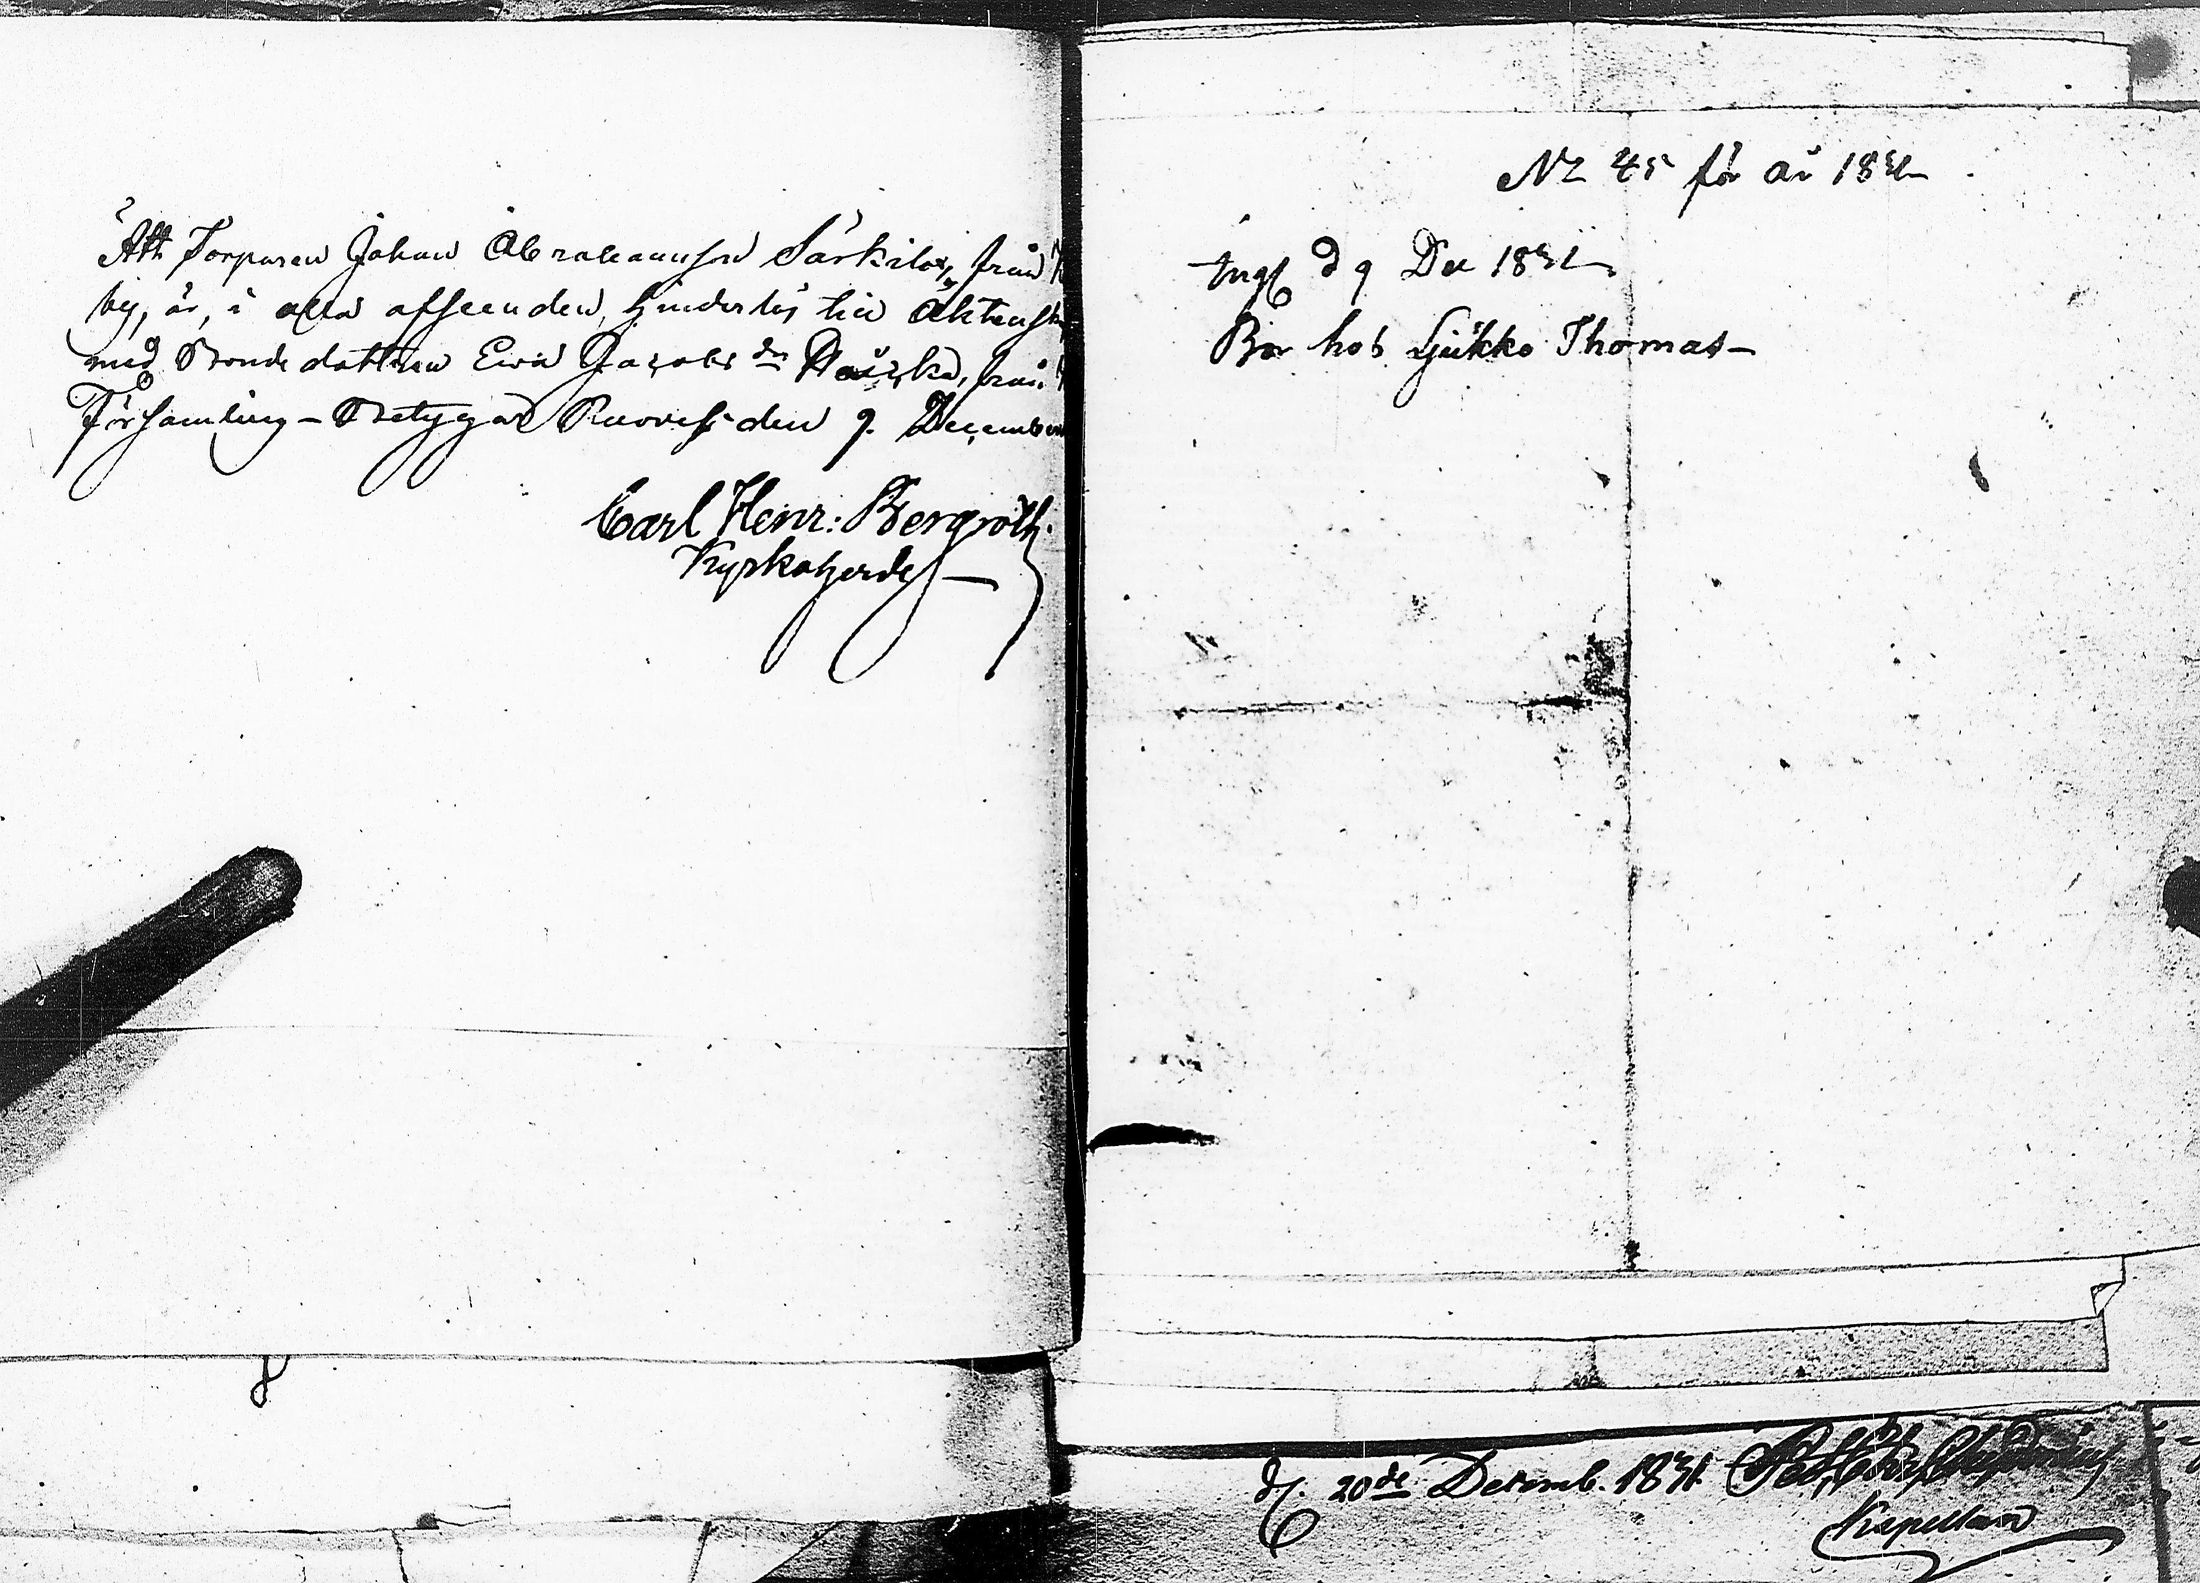 Att Torparen Johan Abrahamsson från
by, är, i alla afseenden, hinderlös till Äktensk
med Bonde dottren Eva Jacobs dr från
Församling – Betygar Ruovesi den 9. December
Carl Henr: Bergroth
Kyrkoherde
N2 45 för år 1831
Ingf d 9 Dec 1831
Bör hos Thomas –
d. 20de Decemb. 1831
Kapellan